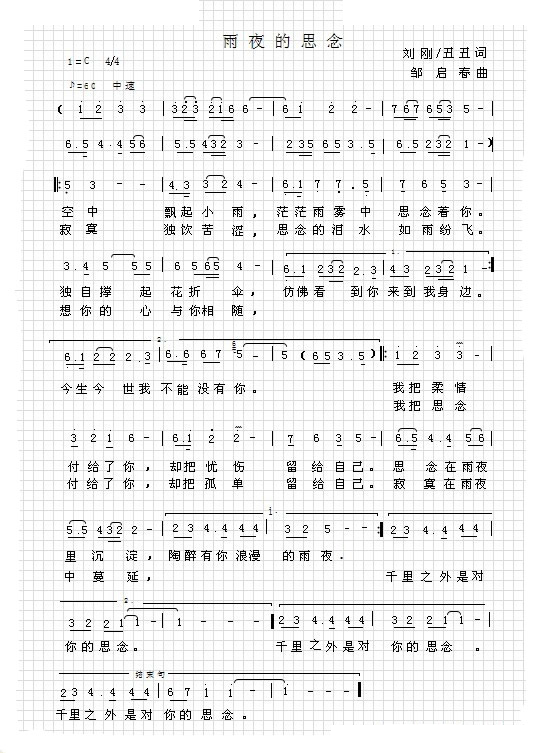 雨夜的思念
1=C 4/4
刘刚/丑丑词
邹启春曲
♪=60 中速
( 1 2 3 3 | 323 2166 - | 61 2 2 - | 767 653
6.5 4.456 | 5.5432 3 - | 235 653.5 | 65232 1 - )
‖: 5 3 - - | 4.3 3 2 4 - | 6.1 7 7.5 | 7 6 5 3 -
空中 飘起小雨, 茫茫雨雾中 思念着你。
寂寞 独饮苦涩, 思念的泪水 如雨纷飞。
3.4 5 5 5 | 6 565 4 - | 6.1 232 2.3 | 43 2321 - :‖
1.
独自撑起 花折伞, 仿佛看 到你来到我身边。
想你的心 与你相随,
2.
6.122 2.3 | 6.6 67 5 - | 5 (653.5) ‖: 1 2 3 3 -
今生今世我不能没有你。 我把柔情
我把思念
3 2 1 6 - | 6.1 2 2 - | 7 6 3 5 - | 6.5 4.4 56
付给了你, 却把忧伤 留给自己。思念在雨夜
付给了你, 却把孤单 留给自己。寂寞在雨夜
1.
5.5 432 2 - | 23 4.4 44 | 3 2 5 - :‖ 23 4.4 44
里沉淀, 陶醉有你浪漫的雨夜.
中蔓延, 千里之外是对
2.
3 2 2 1 1 - | 1 - - - ‖ 23 4.4 44 | 3 2 2 1 1 -
你的思念。 千里之外是对 你的思念 。
结束句
23 4.4 44 | 67 1 1 - | 1 - - - ‖
千里之外是对你的思念。